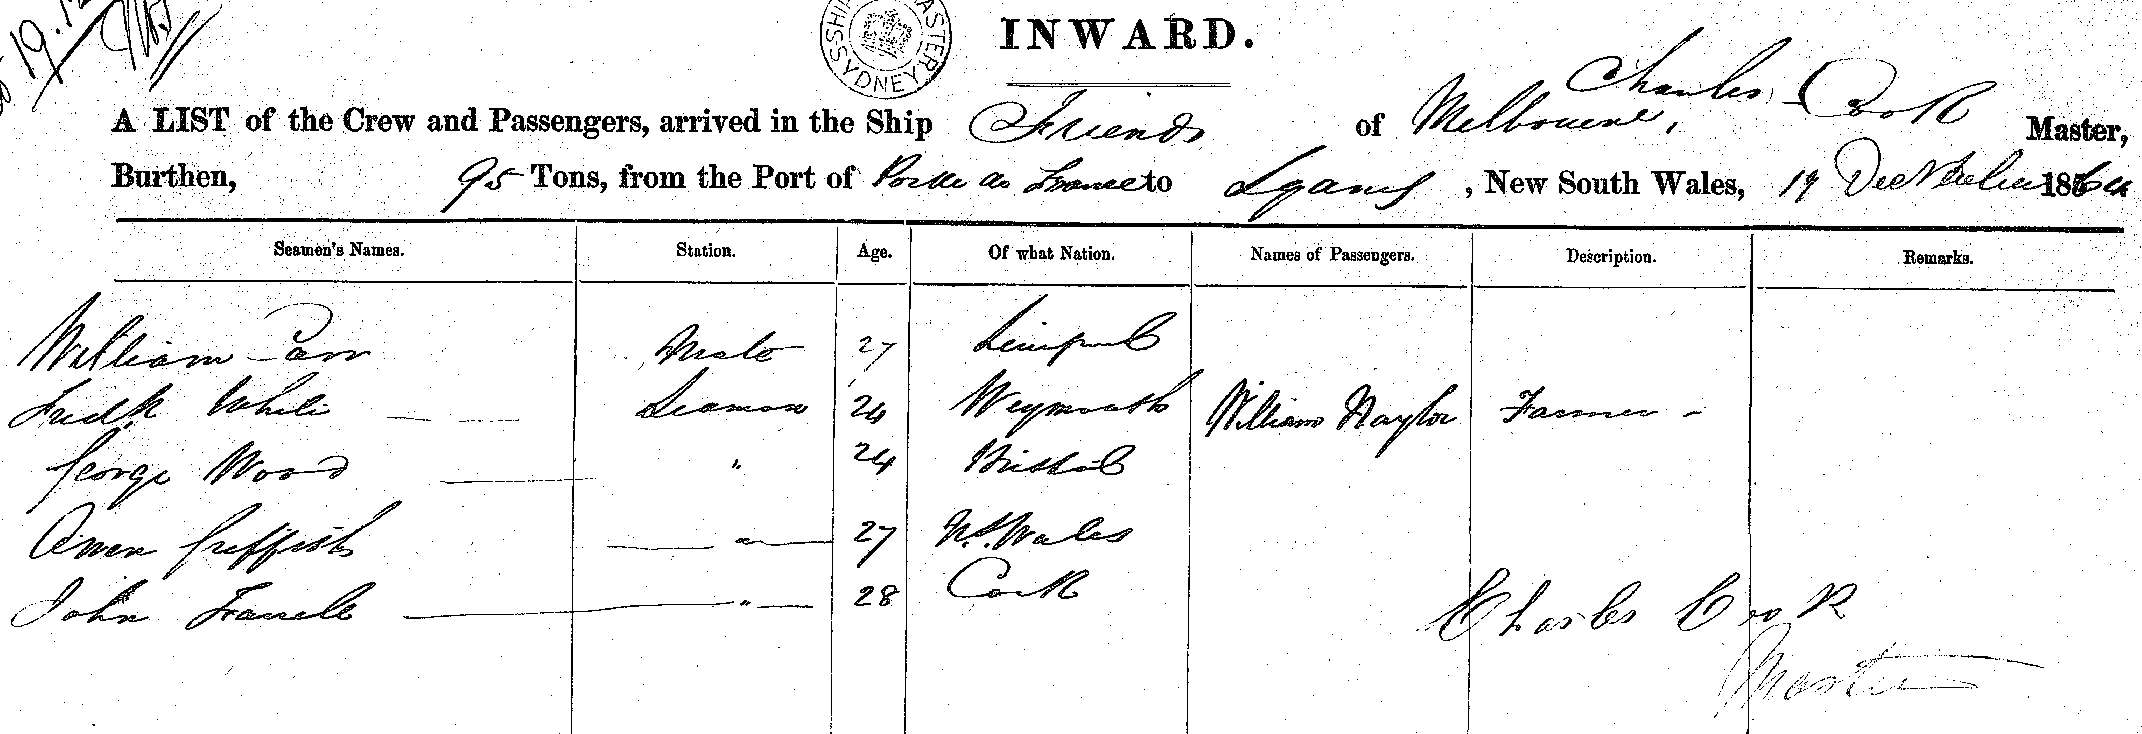 19.12
SHIPPING MASTER SYDNEY
INWARD.
A LIST of the Crew and Passengers, arrived in the Ship Friends of Melbourne, Charles Cook Master,
Burthen, 95 Tons, from the Port of Port de France to Sydney, New South Wales, 19 December 186
Seamen's Names. Station. Age. Of what Nation. Names of Passengers. Description. Remarks.
William Carr Mate 27 Liverpool
Fredk White Seaman 24 Weymouth William Naylor Farmer
George Wood " 24 Bristol
Owen Griffith " 27 Wales
John Farrell " 28 Cork
Charles Cook
Master